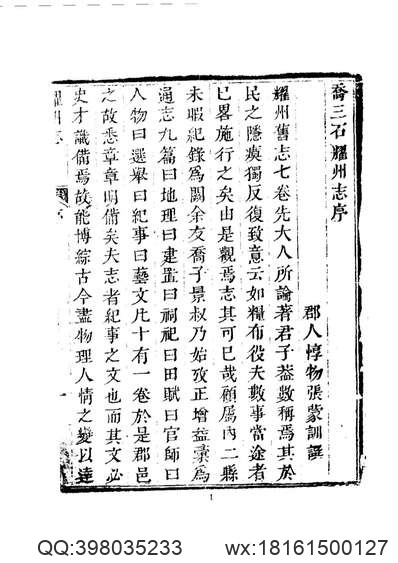 喬三石耀州志序
郡人惇物張蒙訓譔
耀州舊志七卷先大人所論著君子葢數稱焉其於
民之隱瘼獨反復致意云如糧布役夫數事當途者
已畧施行之矣由是觀焉志其可已哉顧屬内二縣
未暇紀錄爲闕余友喬子景叔乃始攷正增益彙爲
通志九篇曰地理曰建置曰祠祀曰田賦曰官師曰
人物曰選舉曰紀事曰藝文凡十有一卷於是郡邑
之故悉章章明備矣夫志者紀事之文也而其文必
史才識備焉故能博綜古今盡物理人情之變以達
耀州志
序
一
1
QQ:398035233 wx:18161500127